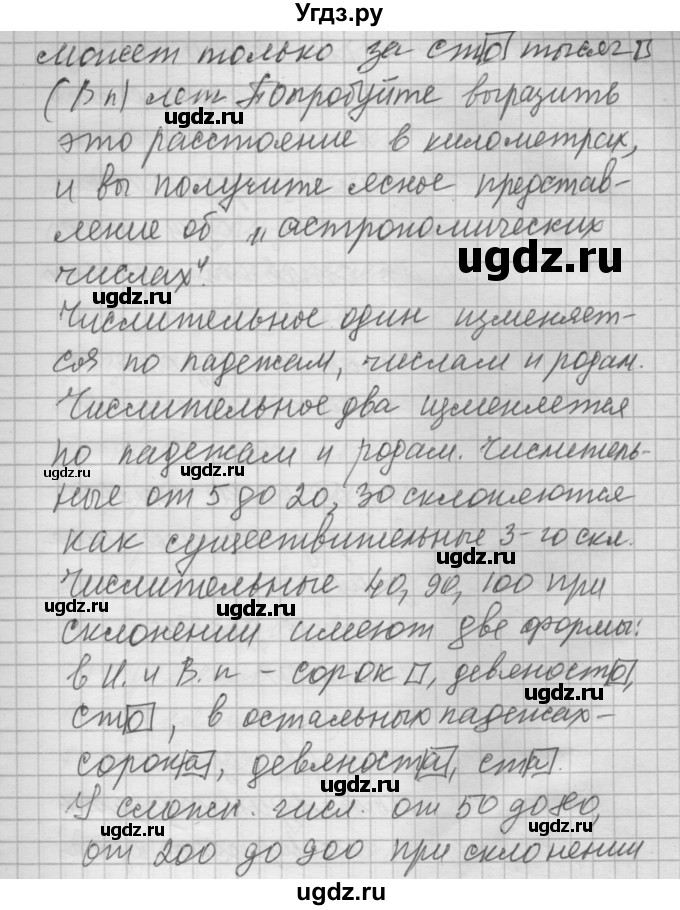 Угдз.ру
может только за сто тысяч
(В п) лет Попробуйте выразить
это расстояние в километрах,
и вы получите ясное представ-
ление об „астрономических
числах“.
Числительное один изменяет-
ся по падежам, числам и родам.
Числительное два изменяется
по падежам и родам. Числитель-
ные от 5 до 20, 30 склоняются
как существительные 3-го скл.
Числительные 40, 90, 100 при
склонении имеют две формы:
в И. и В. п – сорок, девяносто,
сто, в остальных падежах–
сорока, девяноста, ста.
У сложн. числ. от 50 до 80,
от 200 до 900 при склонении
ugdz.ru